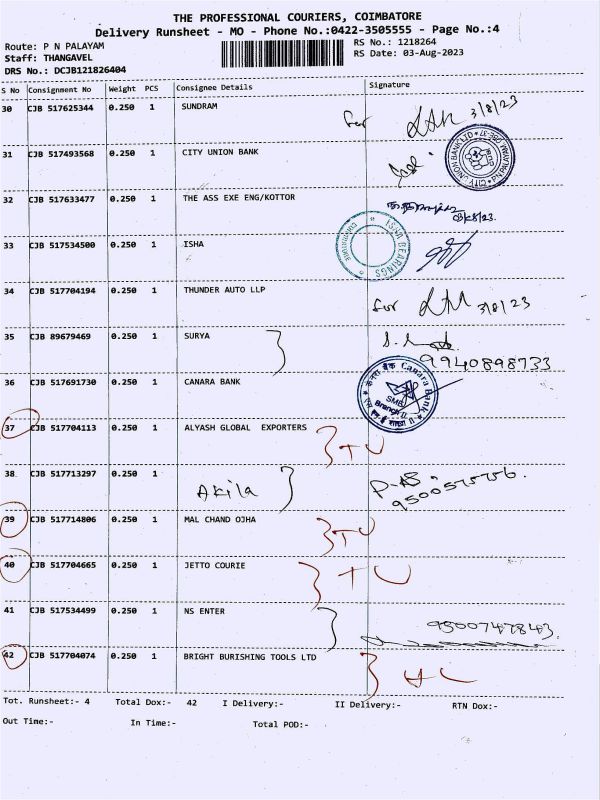 THE PROFESSIONAL COURIERS, COIMBATORE
Delivery Runsheet - MO - Phone No.:0422-3505555 - Page No.:4
Route: P N PALAYAM
RS No.: 1218264
Staff: THANGAVEL
RS Date: 03-Aug-2023
DRS No.: DCJB121826404
S No Consignment No Weight PCS Consignee Details Signature
30 CJB 517625344 0.250 1 SUNDRAM for 3/8/23
31 CJB 517493568 0.250 1 CITY UNION BANK
32 CJB 517633477 0.250 1 THE ASS EXE ENG/KOTTOR
33 CJB 517534500 0.250 1 ISHA
34 CJB 517704194 0.250 1 THUNDER AUTO LLP for 3/8/23
35 CJB 89679469 0.250 1 SURYA
9940898733
36 CJB 517691730 0.250 1 CANARA BANK
Canara Bank
SME
Branch II
37 CJB 517704113 0.250 1 ALYASH GLOBAL EXPORTERS TU
38 CJB 517713297 0.250 1 Akila
39 CJB 517714806 0.250 1 MAL CHAND OJHA TU
40 CJB 517704665 0.250 1 JETTO COURIE TU
41 CJB 517534499 0.250 1 NS ENTER
9500747843
42 CJB 517704074 0.250 1 BRIGHT BURISHING TOOLS LTD
Tot. Runsheet:- 4 Total Dox:- 42 I Delivery:- II Delivery:- RTN Dox:-
Out Time:- In Time:- Total POD:-